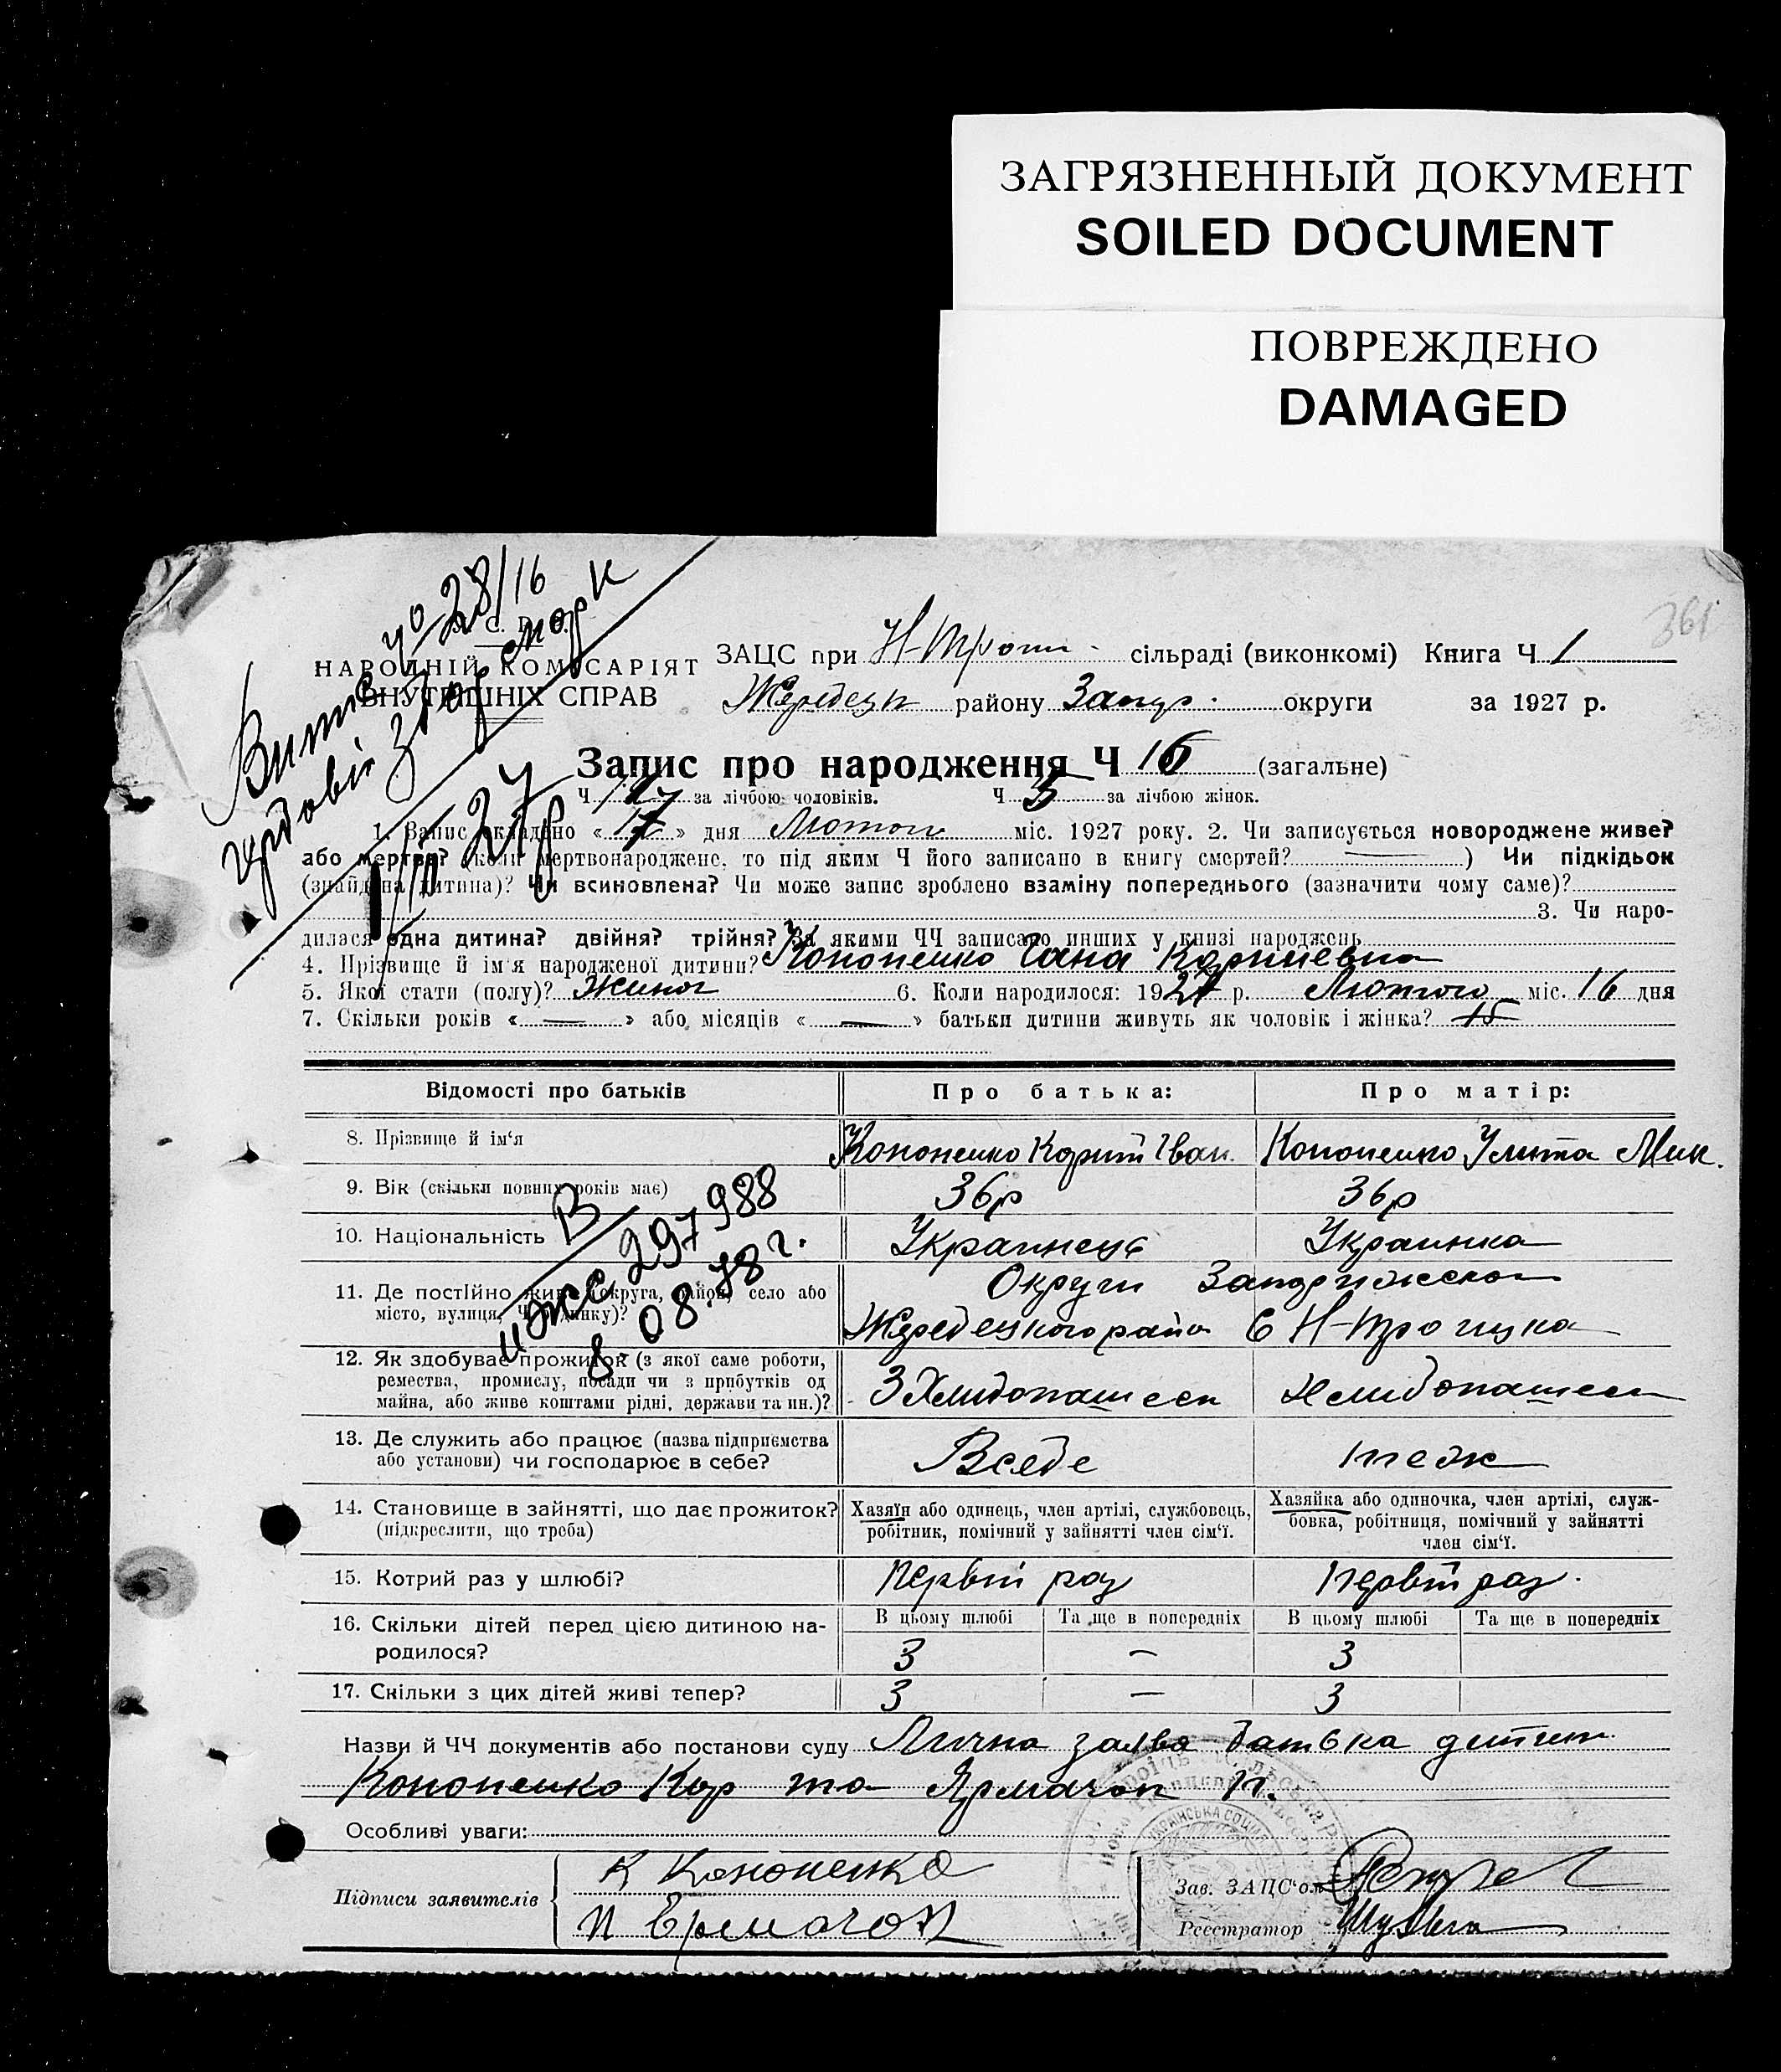 ЗАГРЯЗНЕННЫЙ ДОКУМЕНТ
SOILED DOCUMENT
ПОВРЕЖДЕНО
DAMAGED
361
28/16
НАРОДНІЙ КОМІСАРІЯТ
ВНУТРІШНІХ СПРАВ
ЗАЦС при Н-Троиц. сільраді (виконкомі) Книга Ч 1
Жеребецк району Запор. округи за 1927 р.
Запис про народження Ч 16 (загальне)
Ч за лічбою чоловіків. Ч 5 за лічбою жінок.
1. Запис складено « 17 » дня Лютого міс. 1927 року. 2. Чи записується новороджене живе?
або мертве? (коли мертвонароджене, то під яким Ч його записано в книгу смертей? ) Чи підкідьок
(знайдена дитина)? Чи всиновлена? Чи може запис зроблено взаміну попереднього (зазначити чому саме)?
3. Чи наро-
дилася одна дитина? двійня? трійня? За якими ЧЧ записано инших у книзі народжень
4. Прізвище й ім'я народженої дитини? Кононенко Гана Корниевна
5. Якої стати (полу)? Жиноч 6. Коли народилося: 1927 р. Лютого міс. 16 дня
7. Скільки років « — » або місяців « — » батьки дитини живуть як чоловік і жінка? 15
Відомості про батьків Про батька: Про матір:
8. Прізвище й ім'я Кононенко Корнит Іван. Кононенко Улита Мик.
9. Вік (скільки повних років має) 36р 36р
10. Національність Украинець Украинка
В
297988
8-08.78 г.
11. Де постійно живе (округа, район, село або
місто, вулиця, Ч будинку)?
Округи Запорижскои
Жеребецкого район С Н-Троицка
12. Як здобуває прожиток (з якої саме роботи,
ремества, промислу, посади чи з прибутків од
майна, або живе коштами рідні, держави та ин.)?
З Хлибопашеси Хлибопашеси
13. Де служить або працює (назва підприємства
або установи) чи господарює в себе?
Всебе теж
14. Становище в зайнятті, що дає прожиток?
(підкреслити, що треба)
Хазяїн або одинець, член артілі, службовець,
робітник, помічний у зайнятті член сім'ї.
Хазяйка або одиночка, член артілі, служ-
бовка, робітниця, помічний у зайнятті
член сім'ї.
15. Котрий раз у шлюбі? Первий раз Первий раз.
16. Скільки дітей перед цією дитиною на-
родилося?
В цьому шлюбі Та ще в попередніх В цьому шлюбі Та ще в попередніх
3 — 3
17. Скільки з цих дітей живі тепер? 3 — 3
Назви й ЧЧ документів або постанови суду Лична заява батька дитини
Кононенко Кор та Ярмачок П.
Особливі уваги:
Підписи заявителів К Кононенко
П Ермачок
Зав. ЗАЦС'ом
Реєстратор